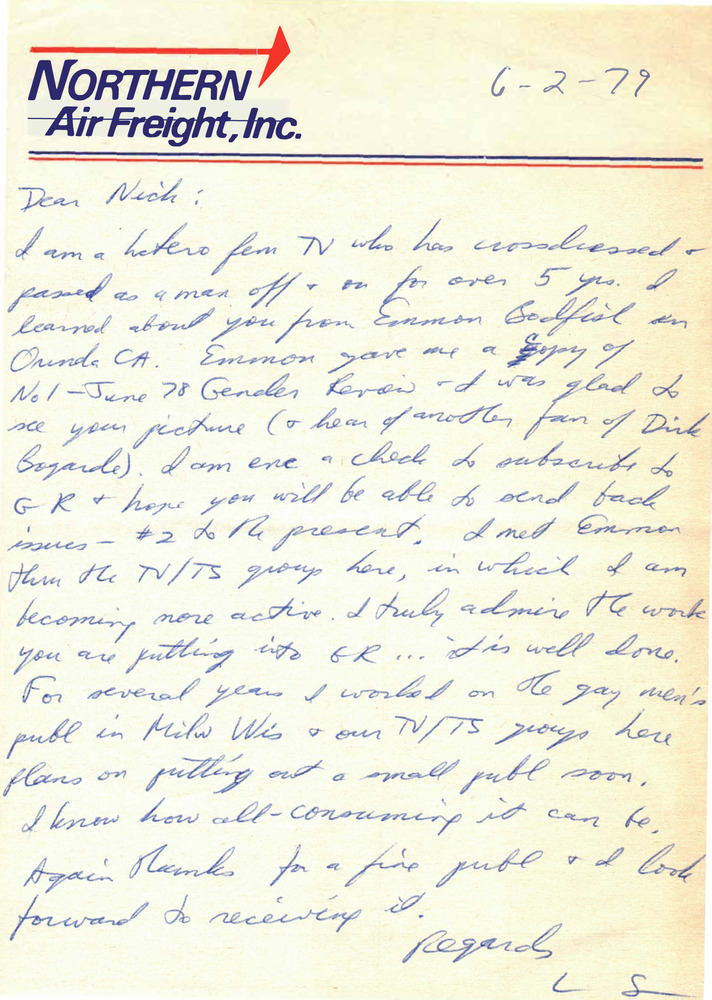 NORTHERN
Air Freight, Inc.
6-2-79
Dear Nick:
I am a hetero fem TV who has crossdressed +
passed as a man off + on for over 5 yrs. I
learned about you from Emmon Bodfish in
Orinda CA. Emmon gave me a copy of
No 1 - June 78 Gender Review - I was glad to
see your picture (+ hear of another fan of Dirk
Bogarde). I am enc a check to subscribe to
GR + hope you will be able to send back
issues - #2 to the present. I met Emmon
thru the TV/TS group here, in which I am
becoming more active. I truly admire the work
you are putting into GR... it is well done.
For several years I worked on the gay men's
publ in Milw Wis + our TV/TS group here
plans on putting out a small publ soon.
I know how all-consuming it can be.
Again thanks for a fine publ + I look
forward to receiving it.
Regards
L S